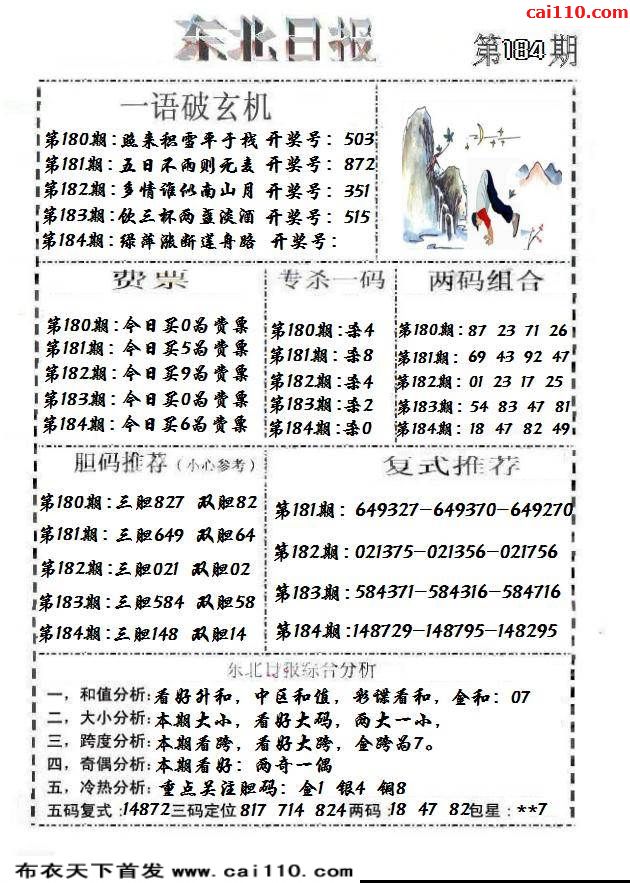 cai110.com
东北日报
第184期
一语破玄机
第180期:踏来积雪平于栈 开奖号: 503
第181期:五日不雨则无麦 开奖号: 872
第182期:多情谁似南山月 开奖号: 351
第183期:饮三杯两盏淡酒 开奖号: 515
第184期:绿萍涨断莲舟路 开奖号:
费票
第180期:今日买0为费票
第181期:今日买5为费票
第182期:今日买9为费票
第183期:今日买0为费票
第184期:今日买6为费票
专杀一码
第180期:杀4
第181期:杀8
第182期:杀4
第183期:杀2
第184期:杀0
两码组合
第180期: 87 23 71 26
第181期: 69 43 92 47
第182期: 01 23 17 25
第183期: 54 83 47 81
第184期: 18 47 82 49
胆码推荐(小心参考)
第180期:三胆827 双胆82
第181期:三胆649 双胆64
第182期:三胆021 双胆02
第183期:三胆584 双胆58
第184期:三胆148 双胆14
复式推荐
第181期: 649327-649370-649270
第182期: 021375-021356-021756
第183期: 584371-584316-584716
第184期:148729-148795-148295
东北日报综合分析
一,和值分析:看好升和,中区和值,彩蝶看和,金和: 07
二,大小分析:本期大小,看好大码,两大一小,
三,跨度分析:本期看跨,看好大跨,金跨为7。
四,奇偶分析:本期看好:两奇一偶
五,冷热分析:重点关注胆码:金1 银4 铜8
五码复式:14872三码定位817 714 824两码:18 47 82包星:**7
布衣天下首发 www.cai110.com